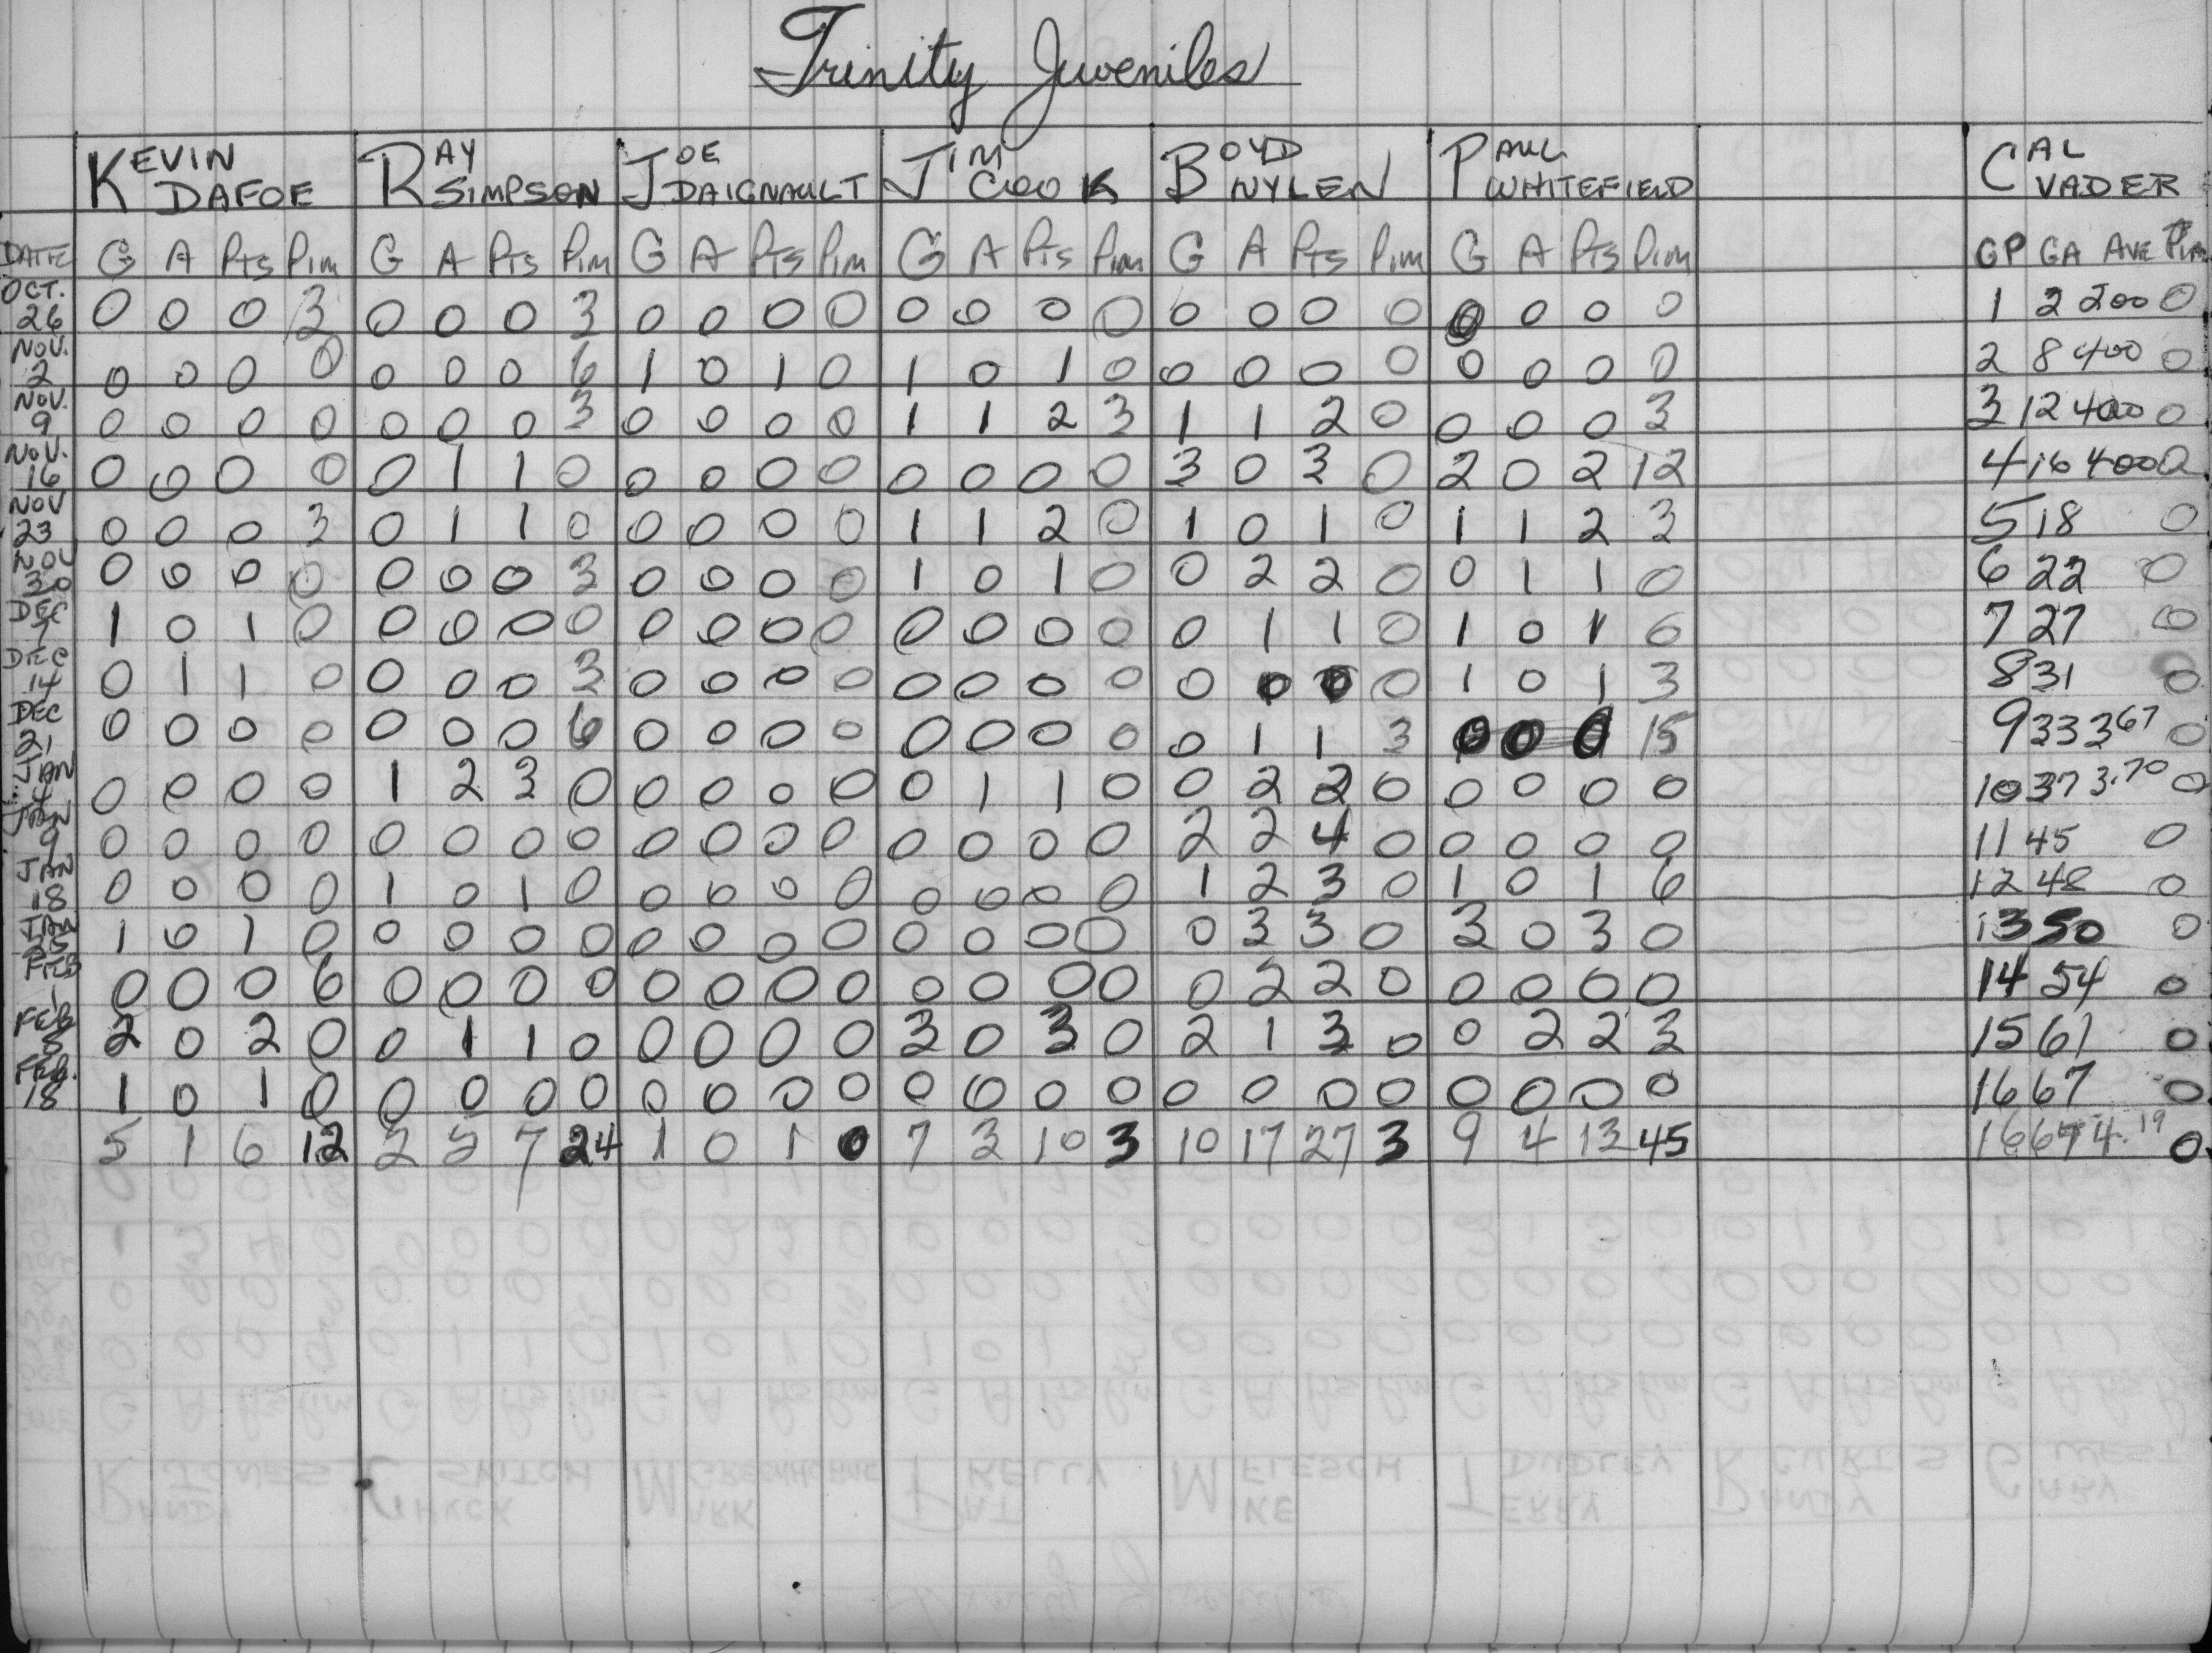 Trinity Juveniles
KEVIN DAFOE RAY SIMPSON JOE DAIGNAULT JIM COOK BOYD NYLEN PAUL WHITEFIELD CAL VADER
DATE G A Pts Pim G A Pts Pim G A Pts Pim G A Pts Pim G A Pts Pim G A Pts Pim GP GA AVE Pim
OCT. 26 0 0 0 3 0 0 0 3 0 0 0 0 0 0 0 0 0 0 0 0 0 0 0 0 1 2 200 0
NOV. 2 0 0 0 0 0 0 0 6 1 0 1 0 1 0 1 0 0 0 0 0 0 0 0 0 2 8 400 0
NOV. 9 0 0 0 0 0 0 0 3 0 0 0 0 1 1 2 3 1 1 2 0 0 0 0 3 3 12 400 0
NOV. 16 0 0 0 0 0 1 1 0 0 0 0 0 0 0 0 0 3 0 3 0 2 0 2 12 4 16 400 0
NOV 23 0 0 0 3 0 1 1 0 0 0 0 0 1 1 2 0 1 0 1 0 1 1 2 3 5 18 0
NOV 30 0 0 0 0 0 0 0 3 0 0 0 0 1 0 1 0 0 2 2 0 0 1 1 0 6 22 0
DEC 7 1 0 1 0 0 0 0 0 0 0 0 0 0 0 0 0 0 1 1 0 1 0 1 0 7 27 0
DEC 14 0 1 1 0 0 0 0 3 0 0 0 0 0 0 0 0 0 0 0 0 1 0 1 3 8 31 0
DEC 21 0 0 0 0 0 0 0 6 0 0 0 0 0 0 0 0 0 1 1 3 0 0 0 15 9 33 367 0
JAN 4 0 0 0 0 1 2 3 0 0 0 0 0 0 1 1 0 0 2 2 0 0 0 0 0 10 37 3.70 0
JAN 9 0 0 0 0 0 0 0 0 0 0 0 0 0 0 0 0 2 2 4 0 0 0 0 0 11 45 0
JAN 18 0 0 0 0 1 0 1 0 0 0 0 0 0 0 0 0 1 2 3 0 1 0 1 6 12 48 0
JAN 25 1 0 1 0 0 0 0 0 0 0 0 0 0 0 0 0 0 3 3 0 3 0 3 0 13 50 0
FEB 1 0 0 0 6 0 0 0 0 0 0 0 0 0 0 0 0 0 2 2 0 0 0 0 0 14 54 0
FEB 2 0 2 0 0 1 1 0 0 0 0 0 3 0 3 0 2 1 3 0 0 2 2 3 15 61 0
FEB. 18 1 0 1 0 0 0 0 0 0 0 0 0 0 0 0 0 0 0 0 0 0 0 0 0 16 67 0
5 1 6 12 2 5 7 24 1 0 1 0 7 3 10 3 10 17 27 3 9 4 13 45 16 67 4.19 0